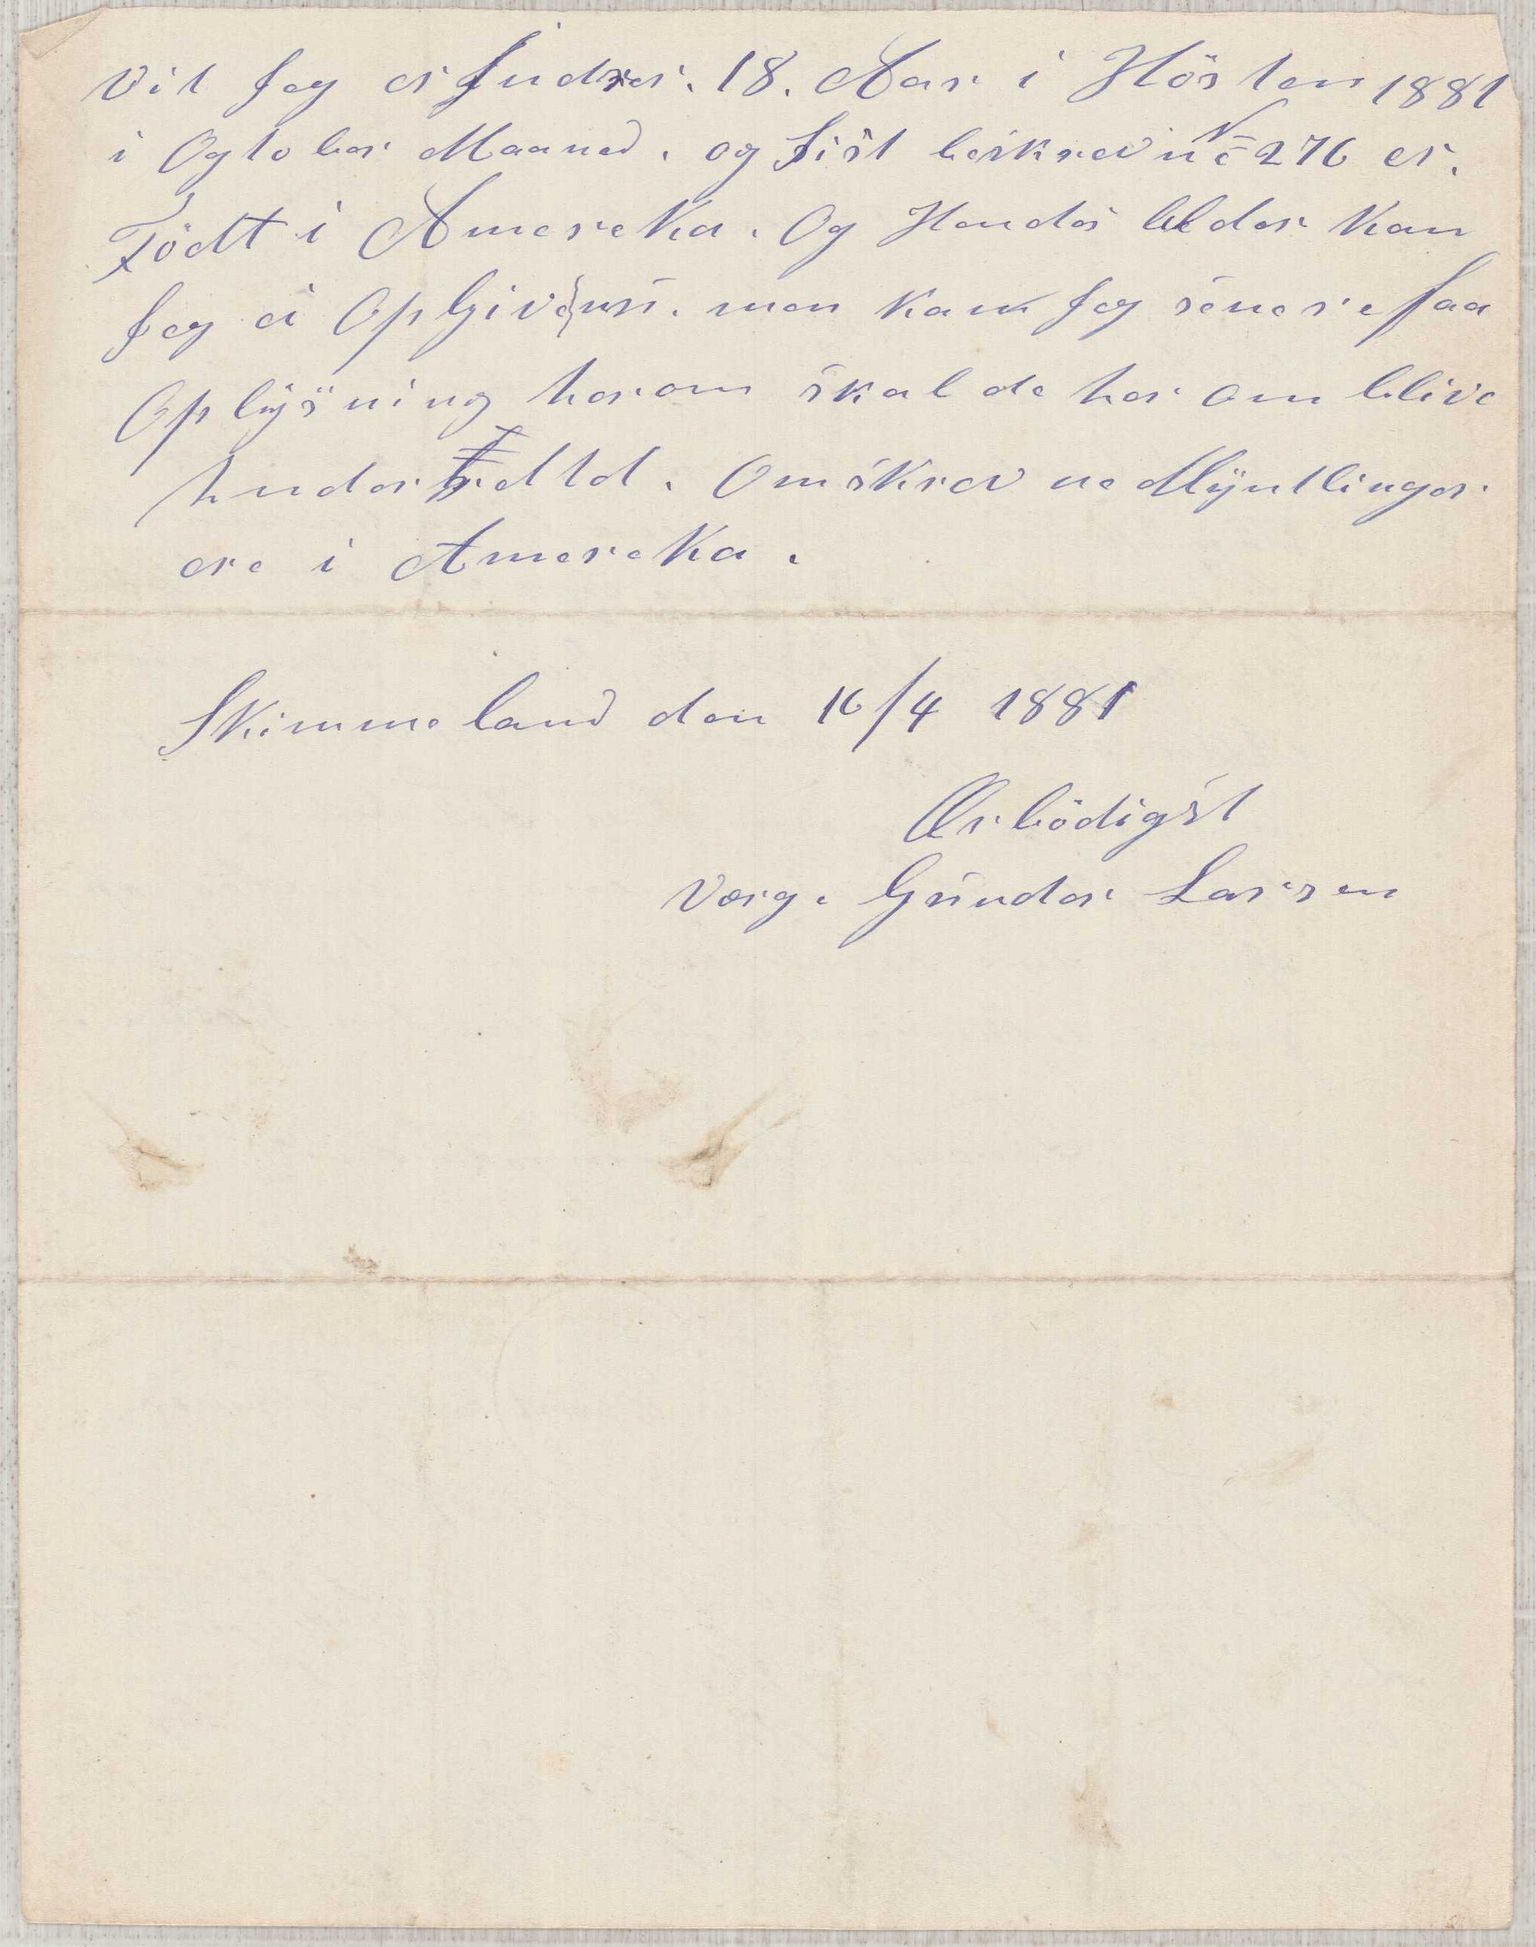 vit Jeg er fudrer. 18. Aar i Hösten 1881
i Ogtober Maaned. og Sist beskrevne No 276 er.
Födt i Amereka. Og Hendes Alder kan
Jeg ei OpGive. men kan Jeg senere faa
Oplysning herom skal de her om blive
underretted. Omskrevne Myntlinger.
ere i Amereka.
Skimmeland den 16/4 1881
Ærbödigst
Værg. Gunder Larsen